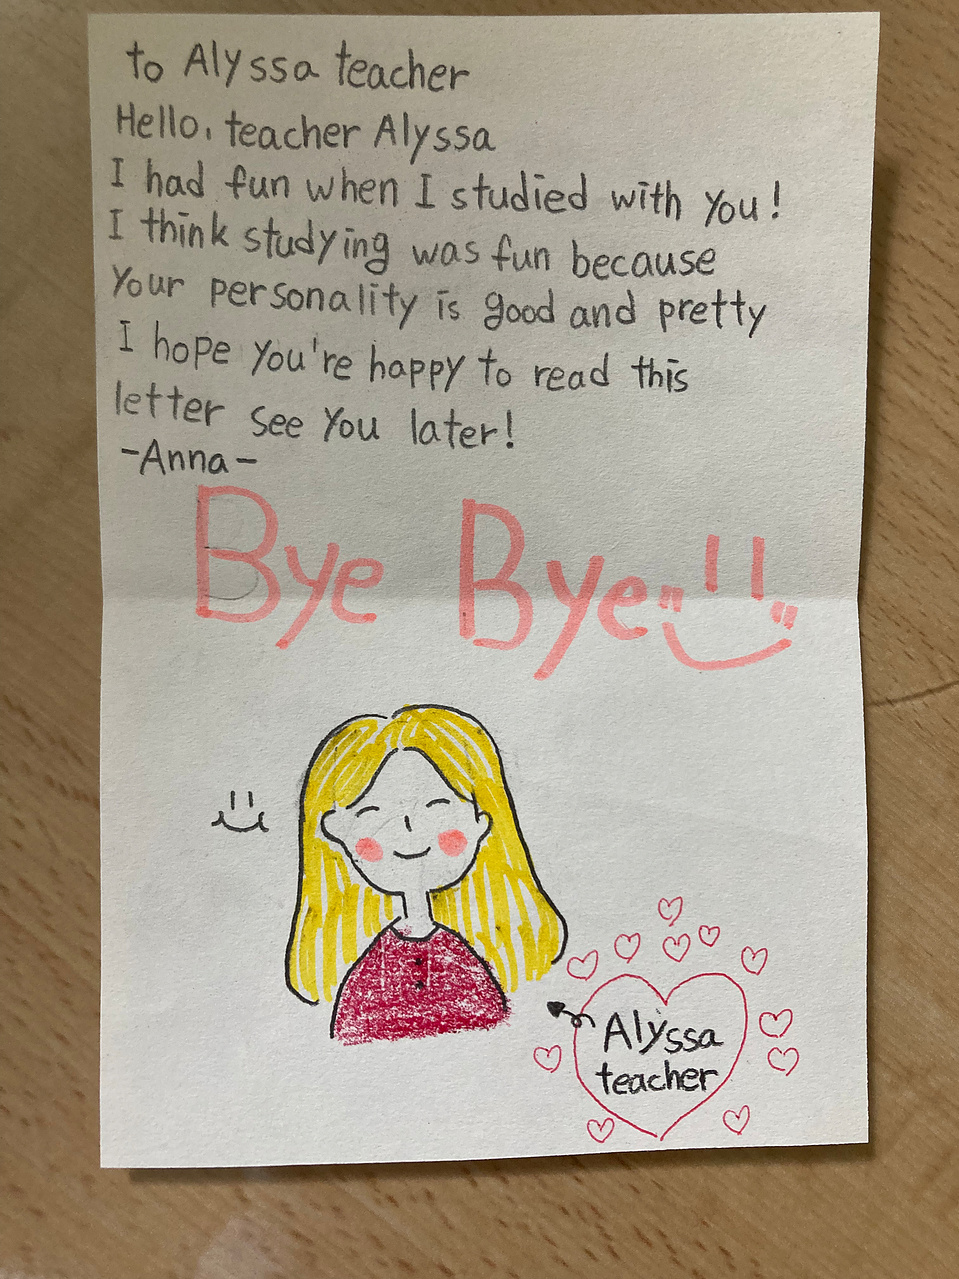 to Alyssa teacher
Hello, teacher Alyssa
I had fun when I studied with you!
I think studying was fun because
your personality is good and pretty
I hope you're happy to read this
letter see you later!
-Anna-
Bye Bye
Alyssa
teacher